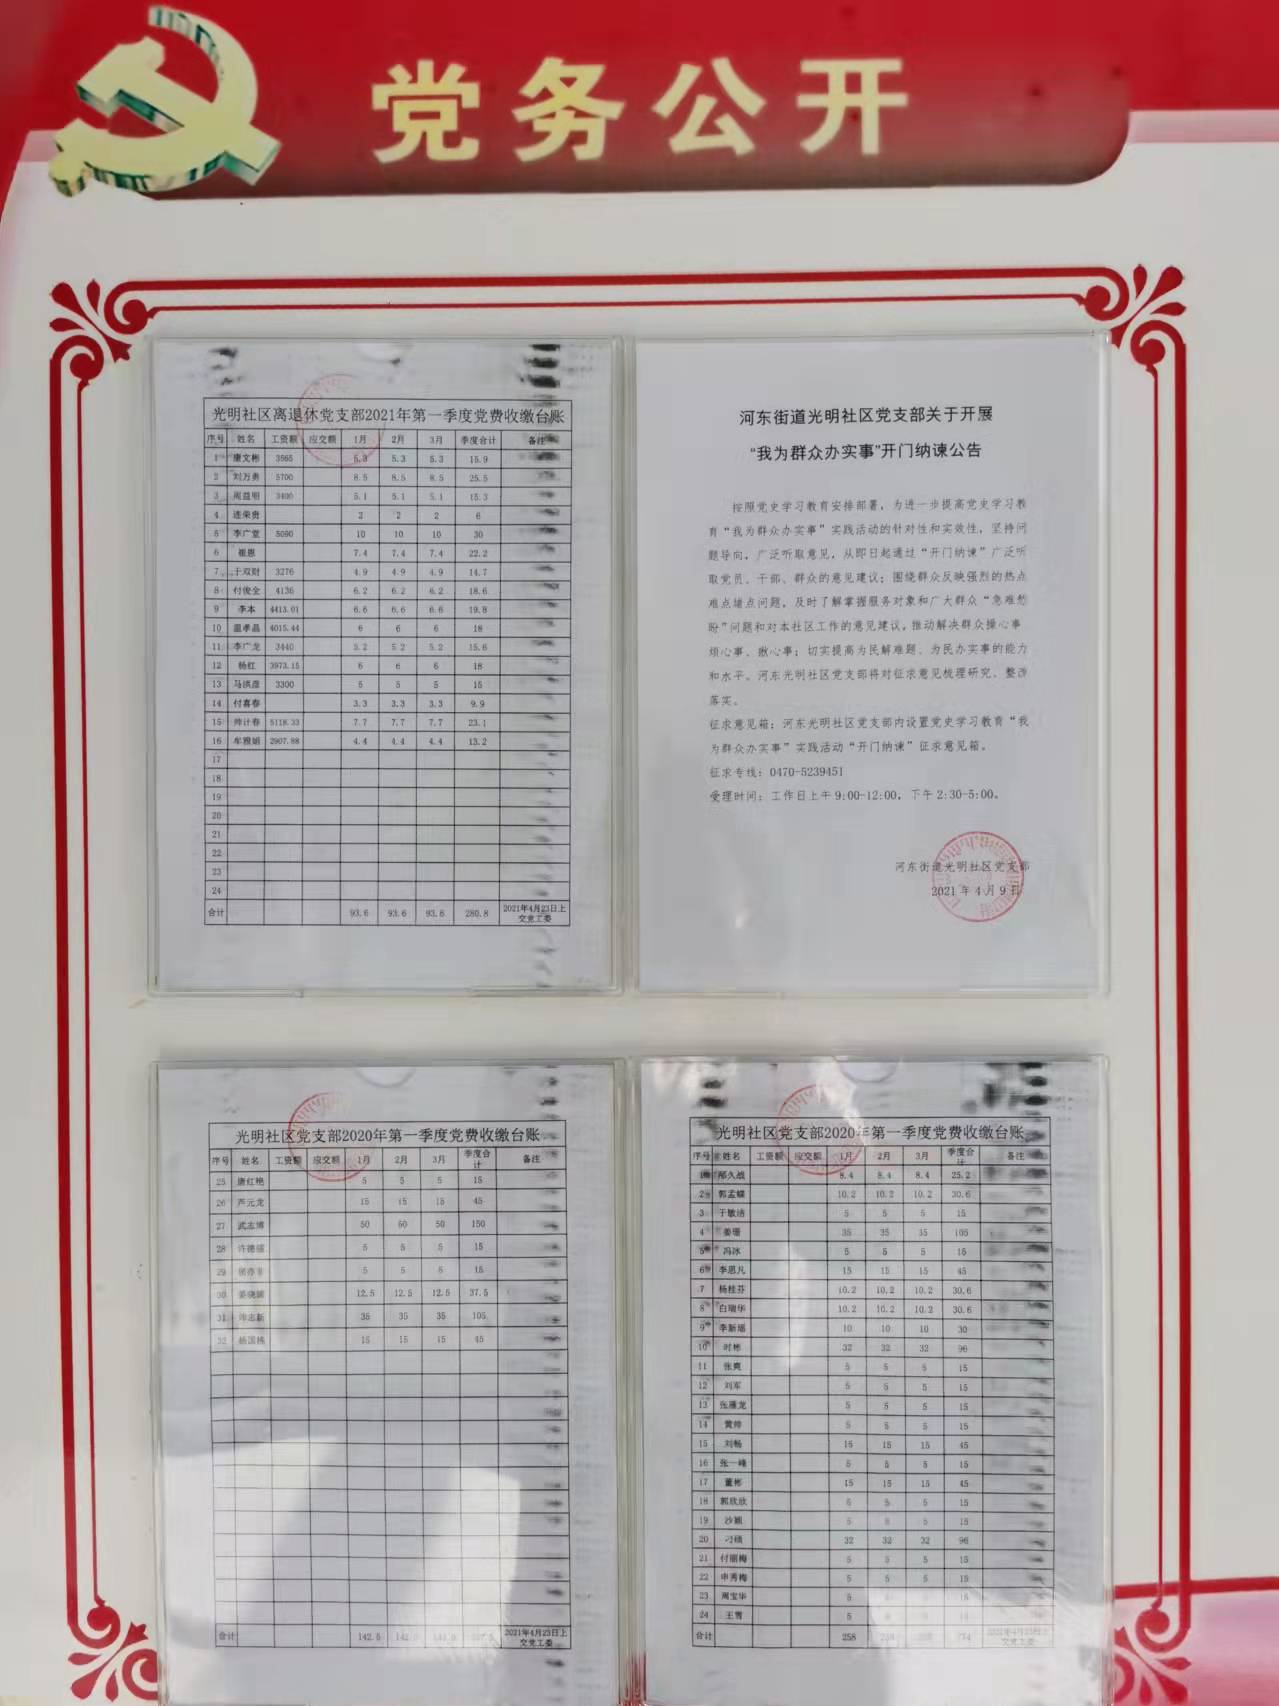 党务公开
光明社区离退休党支部2021年第一季度党费收缴台账
序号 姓名 工资额 应交额 1月 2月 3月 季度合计 备注
1 康文彬 3565 5.3 5.3 5.3 15.9
2 刘万勇 5700 8.5 8.5 8.5 25.5
3 周益明 3400 5.1 5.1 5.1 15.3
4 连荣贵 2 2 2 6
5 李广堂 5090 10 10 10 30
6 崔恩 7.4 7.4 7.4 22.2
7 于双财 3276 4.9 4.9 4.9 14.7
8 付俊全 4136 6.2 6.2 6.2 18.6
9 李本 4413.01 6.6 6.6 6.6 19.8
10 温孝晶 4015.44 6 6 6 18
11 李广龙 3440 5.2 5.2 5.2 15.6
12 杨红 3973.15 6 6 6 18
13 马洪彦 3300 5 5 5 15
14 付喜春 3.3 3.3 3.3 9.9
15 帅计春 5118.33 7.7 7.7 7.7 23.1
16 牟雅娟 2907.88 4.4 4.4 4.4 13.2
17
18
19
20
21
22
23
24
合计 93.6 93.6 93.6 280.8 2021年4月23日上
交党工委
河东街道光明社区党支部关于开展
“我为群众办实事”开门纳谏公告
按照党史学习教育安排部署，为进一步提高党史学习教
育“我为群众办实事”实践活动的针对性和实效性，坚持问
题导向，广泛听取意见，从即日起通过“开门纳谏”广泛听
取党员、干部、群众的意见建议；围绕群众反映强烈的热点
难点堵点问题，及时了解掌握服务对象和广大群众“急难愁
盼”问题和对本社区工作的意见建议，推动解决群众操心事、
烦心事、揪心事；切实提高为民解难题、为民办实事的能力
和水平。河东光明社区党支部将对征求意见梳理研究、整改
落实。
征求意见箱：河东光明社区党支部内设置党史学习教育“我
为群众办实事”实践活动“开门纳谏”征求意见箱。
征求专线：0470-5239451
受理时间：工作日上午9:00-12:00，下午2:30-5:00。
河东街道光明社区党支部
2021年4月9日
光明社区党支部2020年第一季度党费收缴台账
序号 姓名 工资额 应交额 1月 2月 3月 季度合
计 备注
25 唐红艳 5 5 5 15
26 芦元龙 15 15 15 45
27 武志博 50 50 50 150
28 许德 5 5 5 15
29 5 5 5 15
30 姜晓 12.5 12.5 12.5 37.5
31 帅志新 35 35 35 105
32 杨国栋 15 15 15 45
合计 142.5 2021年4月23日上
交党工委
光明社区党支部2020年第一季度党费收缴台账
序号 姓名 工资额 应交额 1月 2月 3月 季度合
计 备注
1 邴久战 8.4 8.4 8.4 25.2
2 郭孟蝶 10.2 10.2 10.2 30.6
3 于敏洁 5 5 5 15
4 姜珊 35 35 35 105
5 冯冰 5 5 5 15
6 李思凡 15 15 15 45
7 杨桂芬 10.2 10.2 10.2 30.6
8 白瑞华 10.2 10.2 10.2 30.6
9 李新瑶 10 10 10 30
10 时彬 32 32 32 96
11 张爽 5 5 5 15
12 刘军 5 5 5 15
13 张雁龙 5 5 5 15
14 黄帅 5 5 5 15
15 刘畅 15 15 15 45
16 张一峰 5 5 5 15
17 董彬 15 15 15 45
18 郭欣欣 5 5 5 15
19 沙颖 5 5 5 15
20 刁硕 32 32 32 96
21 付丽梅 5 5 5 15
22 申秀梅 5 5 5 15
23 周宝华 5 15
24 王雪 5
合计 258 774 2021年4月23日上
交党工委